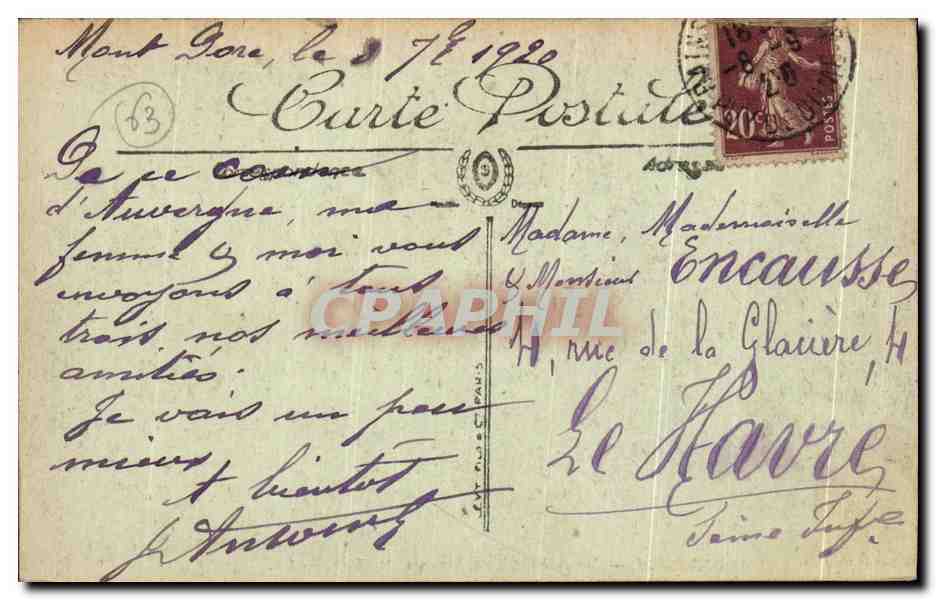 Mont Dore, le 8 7bre 1920
63
Carte Postale
20c
POSTES
De ce coin
d'Auvergne, ma
femme & moi vous
envoyons à tous
trois, nos meilleures
amitiés.
Je vais un peu
mieux
A bientôt
Adresse
Madame, Mademoiselle
& Monsieur Encausse
4, rue de la Glacière, 4
Le Havre
Seine Infre
CPAPHIL
PARIS